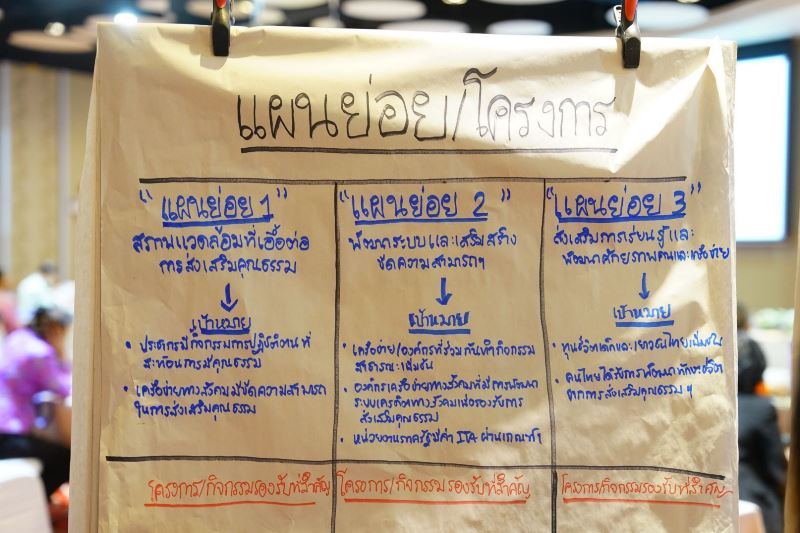 แผนย่อย/โครงการ
"แผนย่อย 1"
สภาพแวดล้อมที่เอื้อต่อ
การส่งเสริมคุณธรรม
เป้าหมาย
• ประชากรมีกิจกรรมการปฏิบัติตนที่
สะท้อนการมีคุณธรรม
• เครือข่ายทางสังคมมีขีดความสามารถ
ในการส่งเสริมคุณธรรม
"แผนย่อย 2"
พัฒนาระบบและเสริมสร้าง
ขีดความสามารถฯ
เป้าหมาย
• เครือข่าย/องค์กรที่ร่วมกันทำกิจกรรม
สาธารณะเพิ่มขึ้น
• องค์กรเครือข่ายทางสังคมที่มีการพัฒนา
ระบบเครดิตทางสังคมเพื่อรองรับการ
ส่งเสริมคุณธรรม
• หน่วยงานภาครัฐมีค่า ITA ผ่านเกณฑ์ฯ
"แผนย่อย 3"
ส่งเสริมการเรียนรู้และ
พัฒนาศักยภาพคนและเครือข่าย
เป้าหมาย
• ทุนชีวิตเด็กและเยาวชนไทยเพิ่มขึ้น
• คนไทยได้รับการพัฒนาทักษะชีวิต
จากการส่งเสริมคุณธรรมฯ
โครงการ/กิจกรรมรองรับที่สำคัญ
โครงการ/กิจกรรมรองรับที่สำคัญ
โครงการ/กิจกรรมรองรับที่สำคัญ